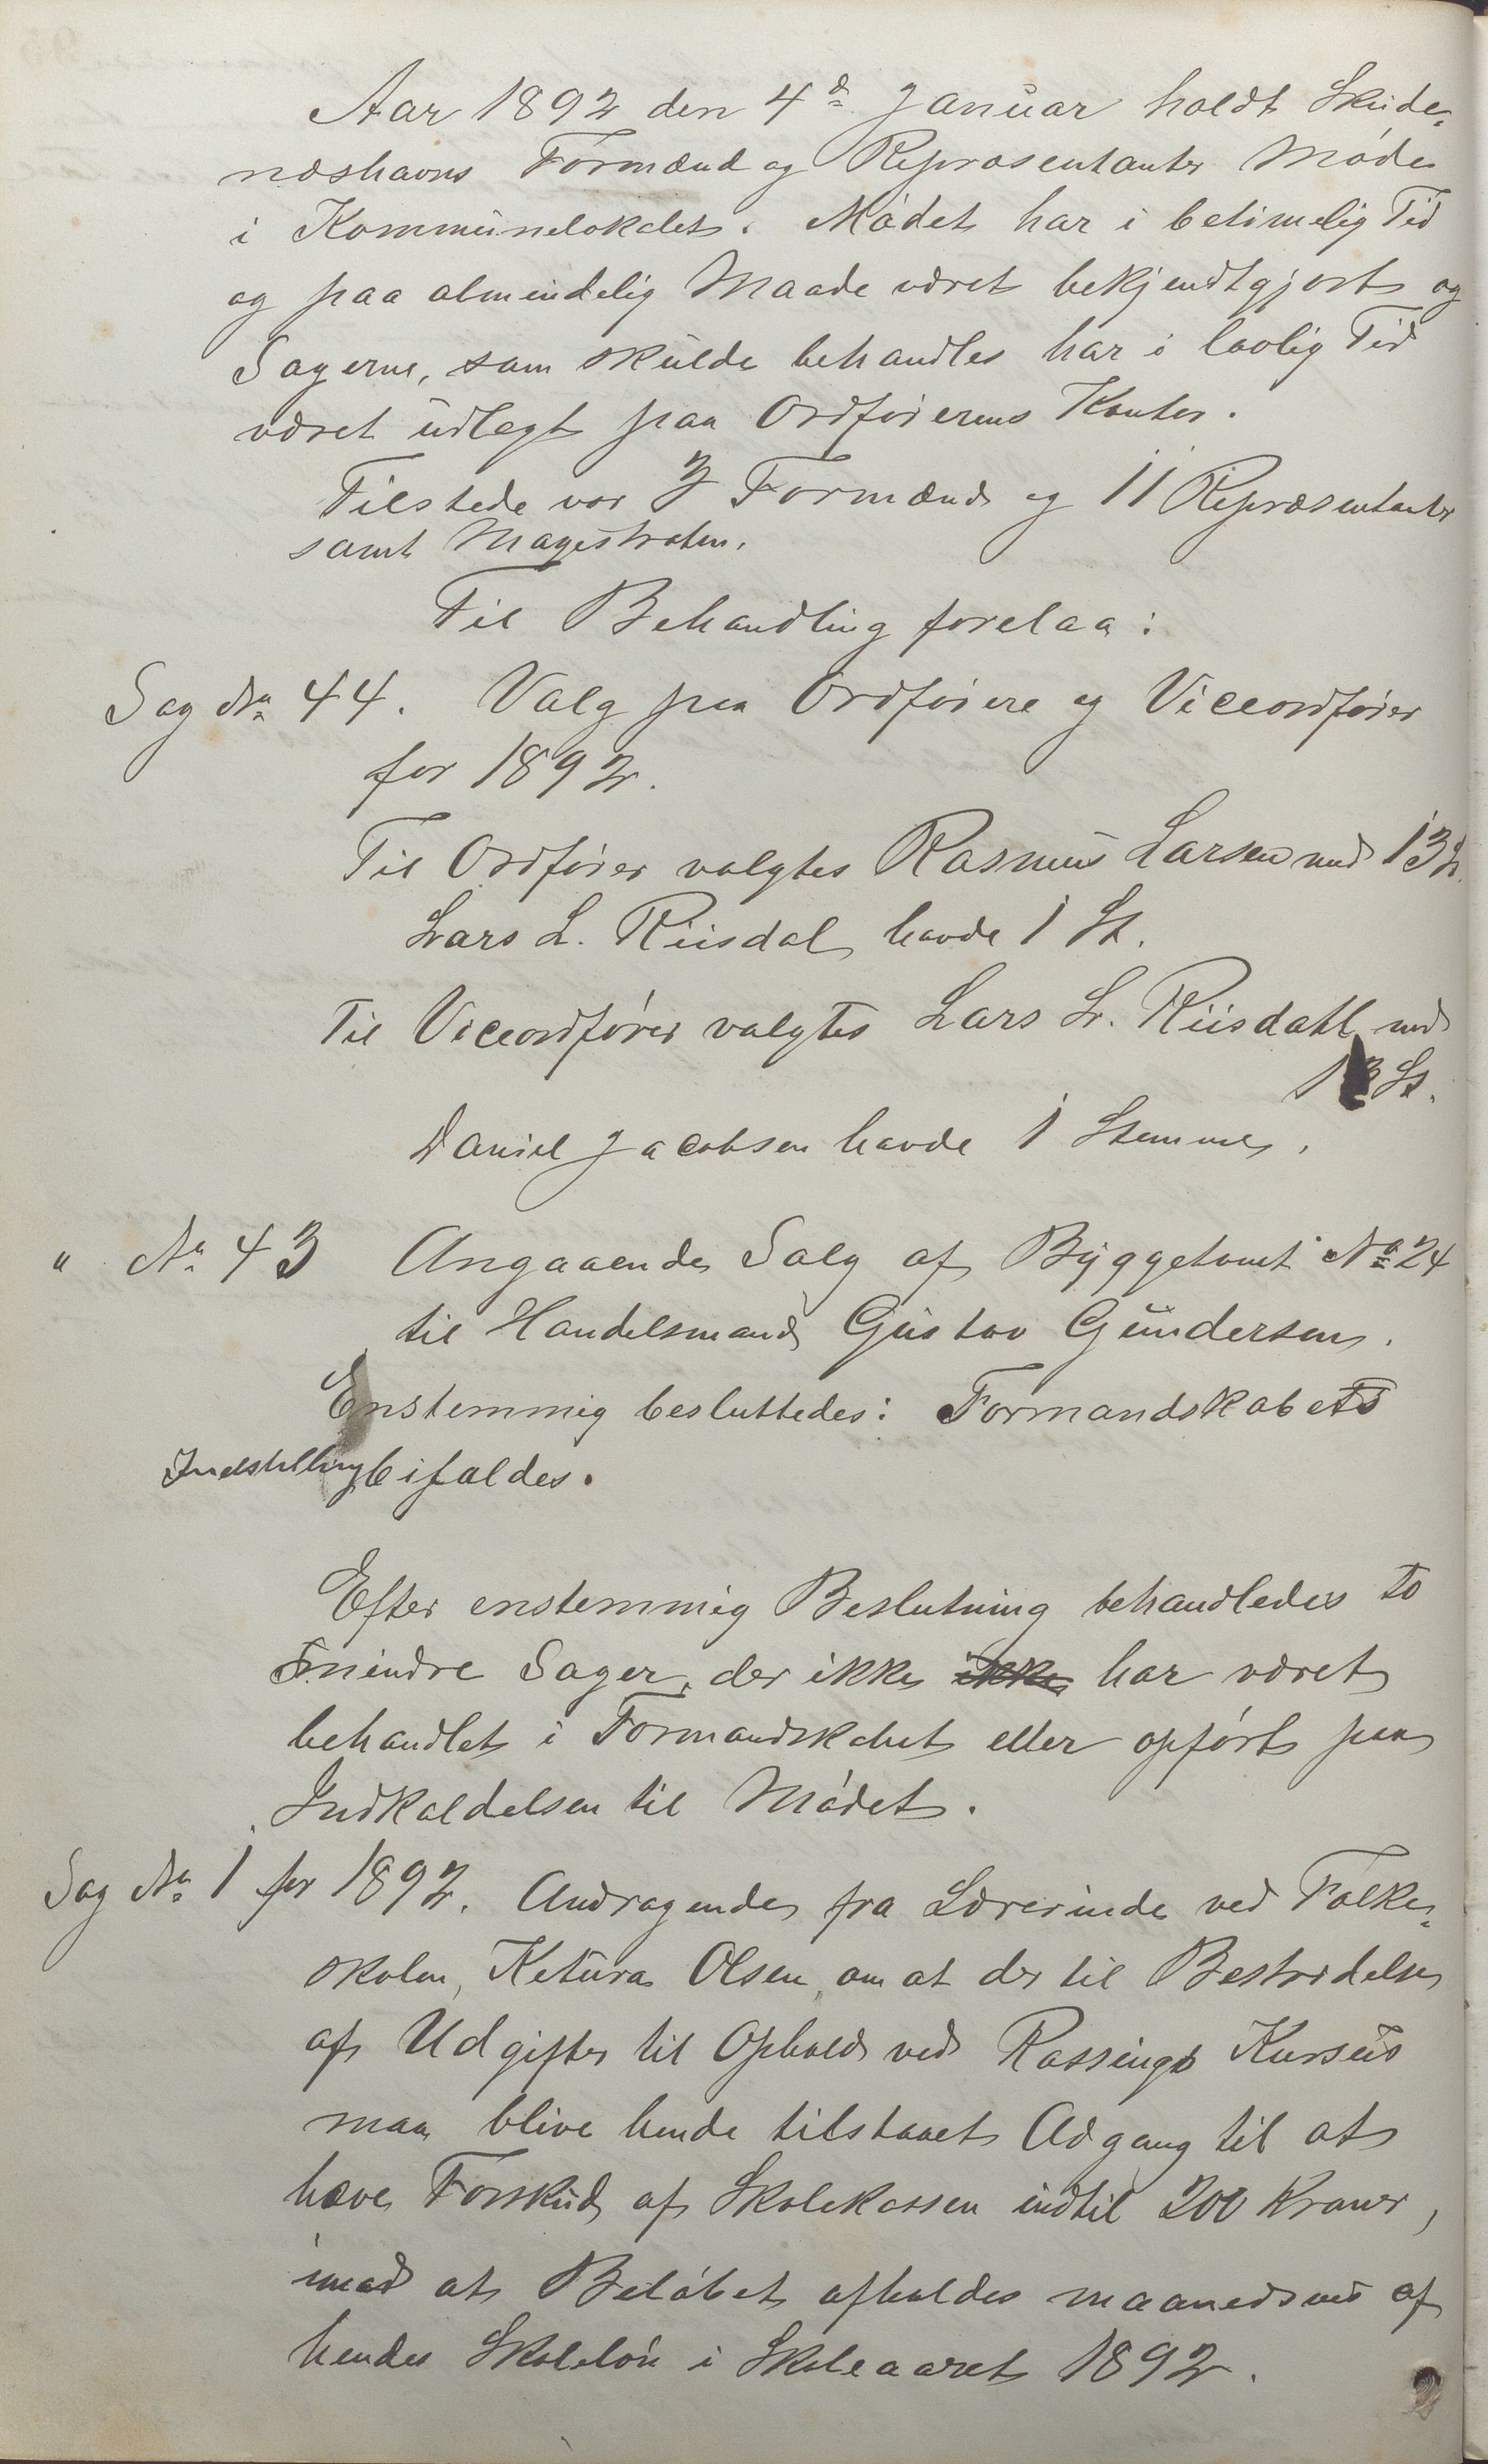 Aar 1892 den 4de Januar holdt Skude-
næshavns Formænd og Repræsentanter Møde
i Kommunelokalet. Mødet har i betimelig Tid
og paa almindelig Maade været bekjendtgjort og
Sagerne, som skulde behandles har i lovlig Tid
været udlagt paa Ordførerens Kontor.
Tilstede var 3 Formænd og 11 Repræsentanter
samt Magistraten.
Til Behandling forelaa:
Sag No 44. Valg paa Ordførere og Viceordfører
for 1892.
Til Ordfører valgtes Rasmus Larsen med 13 St.
Lars L. Riisdal havde 1 St.
Til Viceordfører valgtes Lars L. Riisdahl med
13 St.
Daniel Jacobsen havde 1 Stemme.
" No 43 Angaaende Salg af Byggetomt No 24
til Handelsmand Gustav Gundersen.
Enstemmig besluttedes: Formandskabets
Indstilling bifaldes.
Efter enstemmig Beslutning behandledes to
mindre Sager, der ikke ikke har været
behandlet i Formandskabet eller opført paa
Indkaldelsen til Mødet.
Sag No 1 for 1892. Andragende fra Lærerinde ved Folke-
skolen, Ketura Olsen, om at der til Bestridelse
af Udgifter til Ophold ved Rossings Kursus
maa blive hende tilstaaet Adgang til at
hæve Forskud af Skolekassen indtil 200 Kroner,
imod at Beløbet afholdes maanedsvis af
hendes Skoleløn i Skoleaaret 1892.